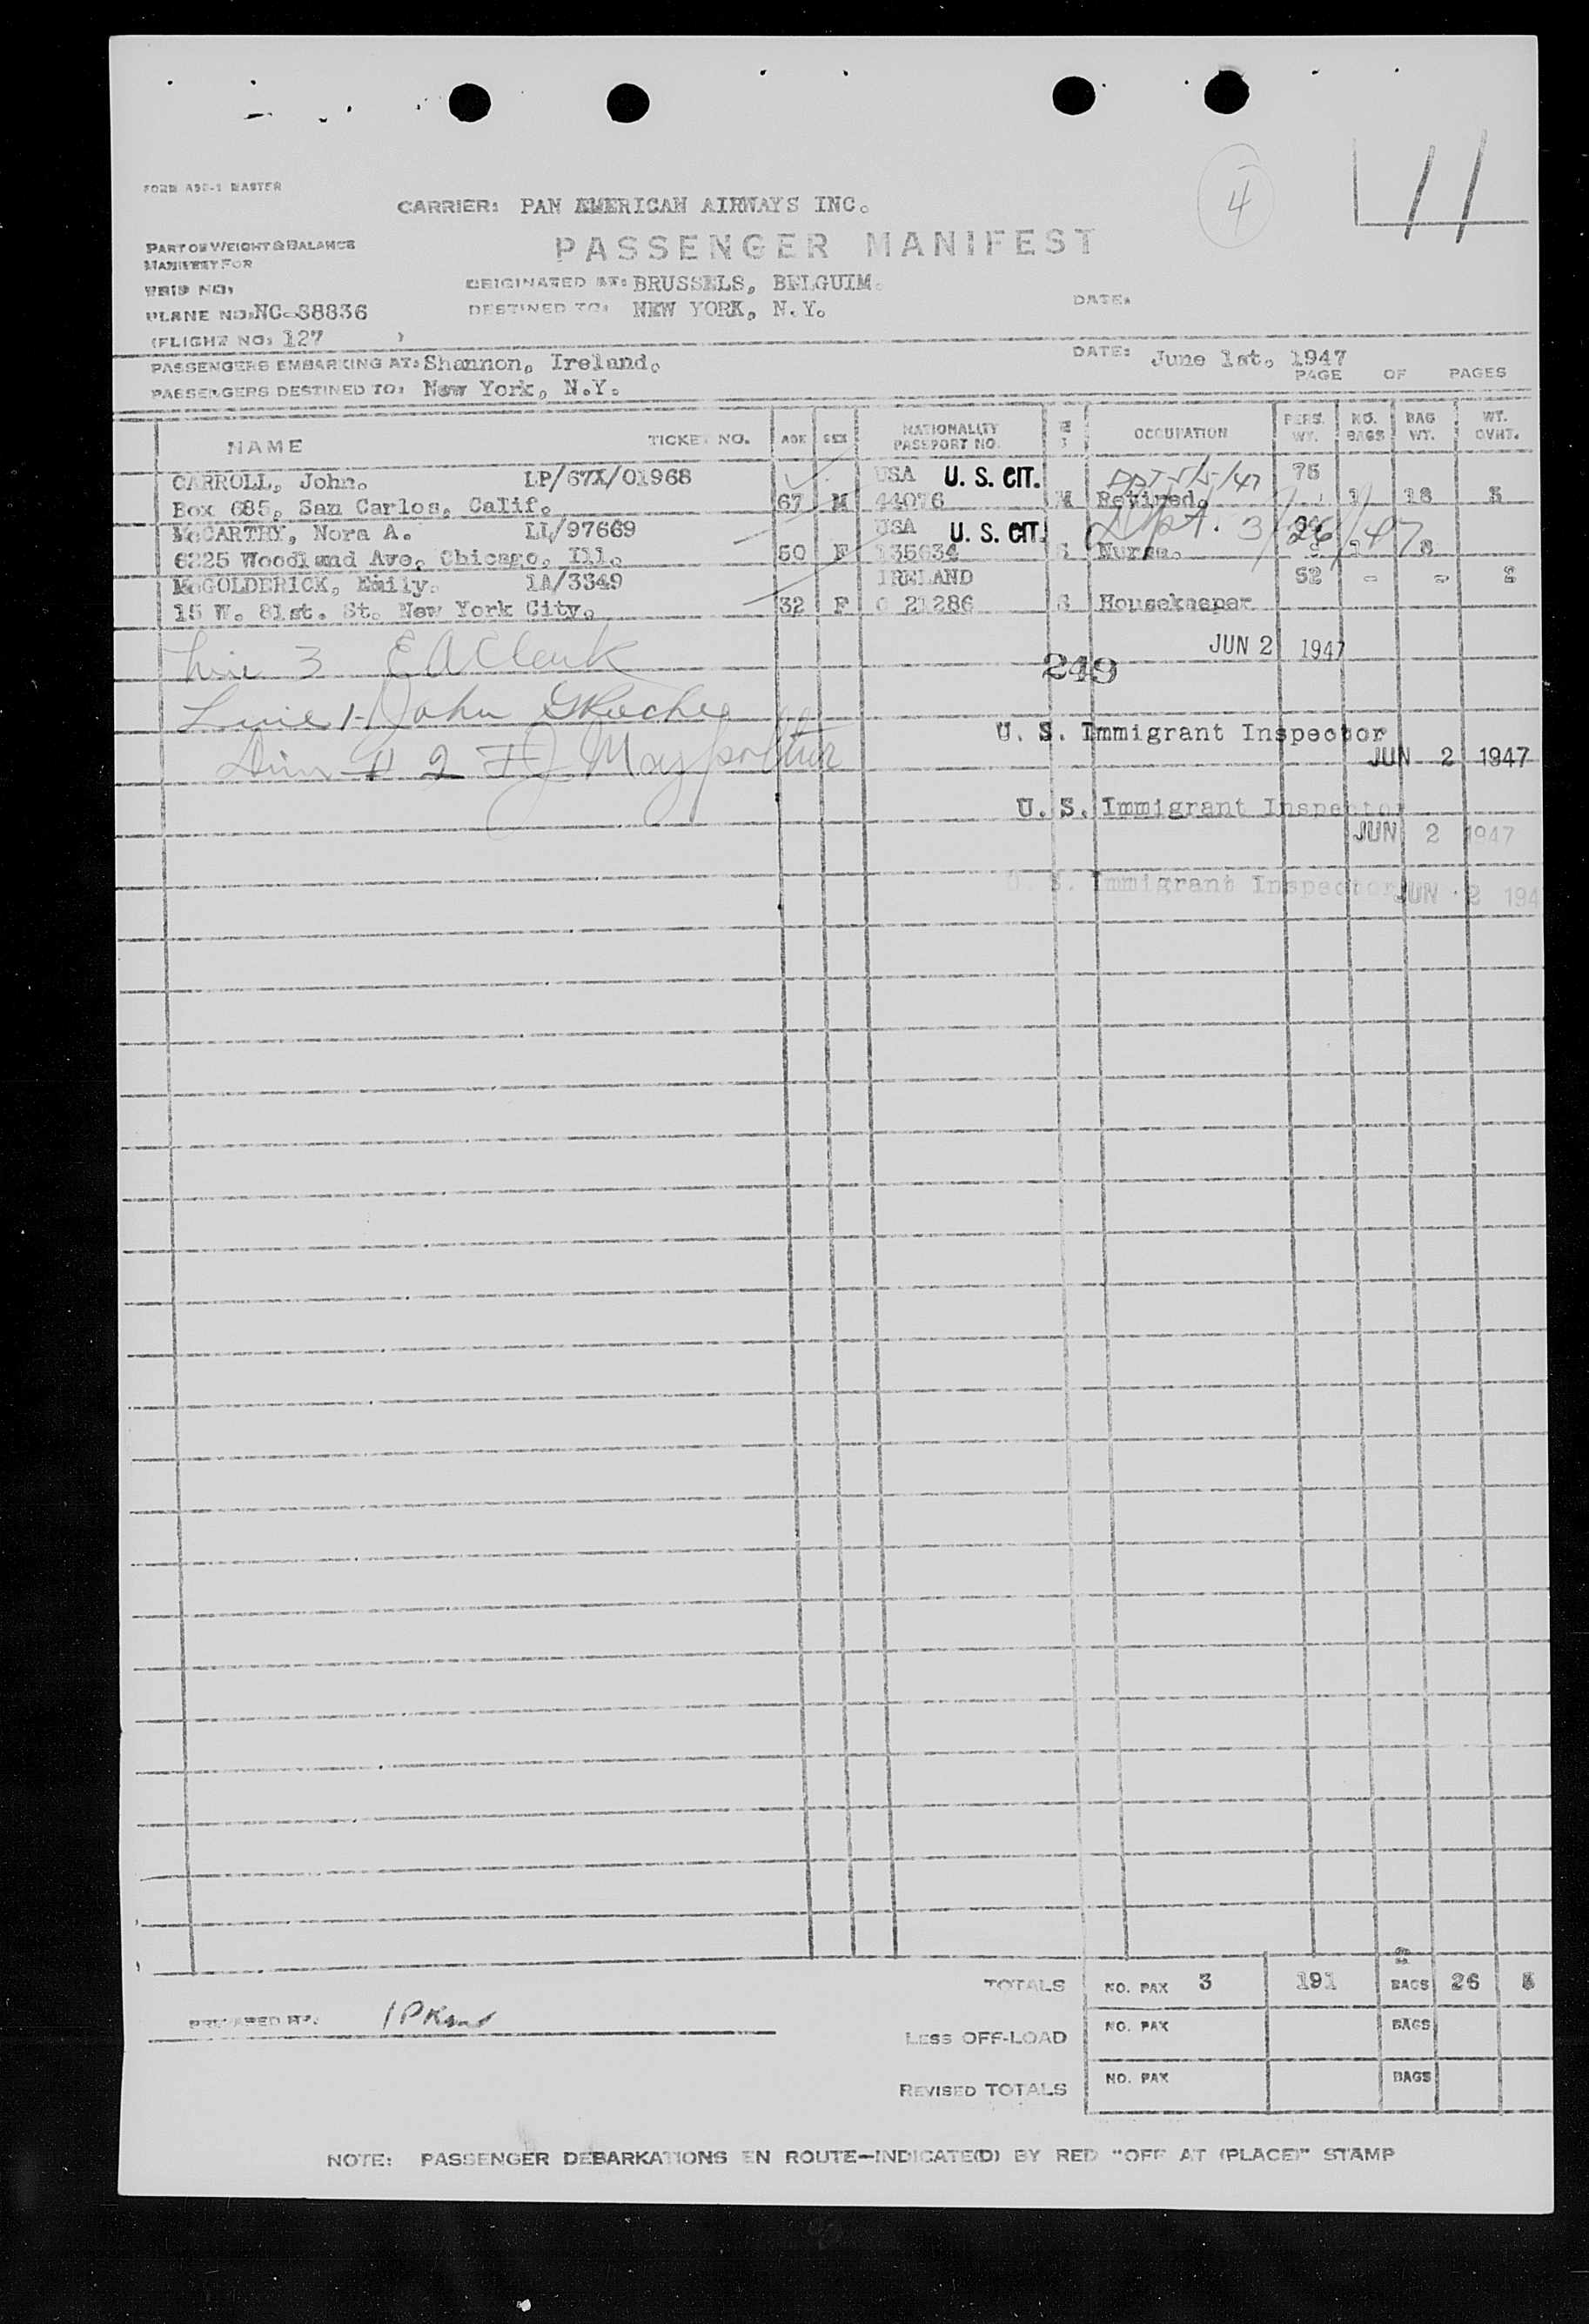 4
11
FORM
MASTER
CARRIER: PAN AMERICAN AIRWAYS INC.
PART OF WEIGHT & BALANCE
MANIFEST FOR
PASSENGER MANIFEST
TRIP NO:
ORIGINATED AT: BRUSSELS, BELGUIM.
PLANE NO: NC-88836
DESTINED TO: NEW YORK, N.Y.
DATE:
(FLIGHT NO: 127 )
PASSENGERS EMBARKING AT: Shannon, Ireland.
DATE: June 1st. 1947
PAGE OF PAGES
PASSENGERS DESTINED TO: New York, N.Y.
NAME TICKET NO. AGE SEX NATIONALITY PASSPORT NO. OCCUPATION PERS. WT. NO. BAGS BAG WT. WT. OVHT.
CARROLL, John. LP/67X/01968 USA U. S. CIT. 5/5/47 75
Box 685, San Carlos, Calif. 67 M 44076 M Retired. 1 18
McCARTHY, Nora A. LL/97669 USA U. S. CIT. Dpt. 3/26/47
6225 Woodland Ave, Chicago, Ill. 50 F 135634 S Nurse. 1 8
McGOLDERICK, Emily. 1A/3349 IRELAND 52 - -
15 W. 81st. St. New York City. 32 F C 21286 S Housekeeper
JUN 2 1947
Line 3 E A Clark
249
Line 1- John
U. S. Immigrant Inspector
JUN 2 1947
# 2
U. S. Immigrant Inspector
JUN 2 1947
U. S. Immigrant Inspector JUN 2 194
TOTALS NO. PAX 3 191 2 BAGS 26
PREPARED BY:
LESS OFF-LOAD NO. PAX BAGS
REVISED TOTALS NO. PAX BAGS
NOTE: PASSENGER DEBARKATIONS EN ROUTE—INDICATE(D) BY RED "OFF AT (PLACE)" STAMP